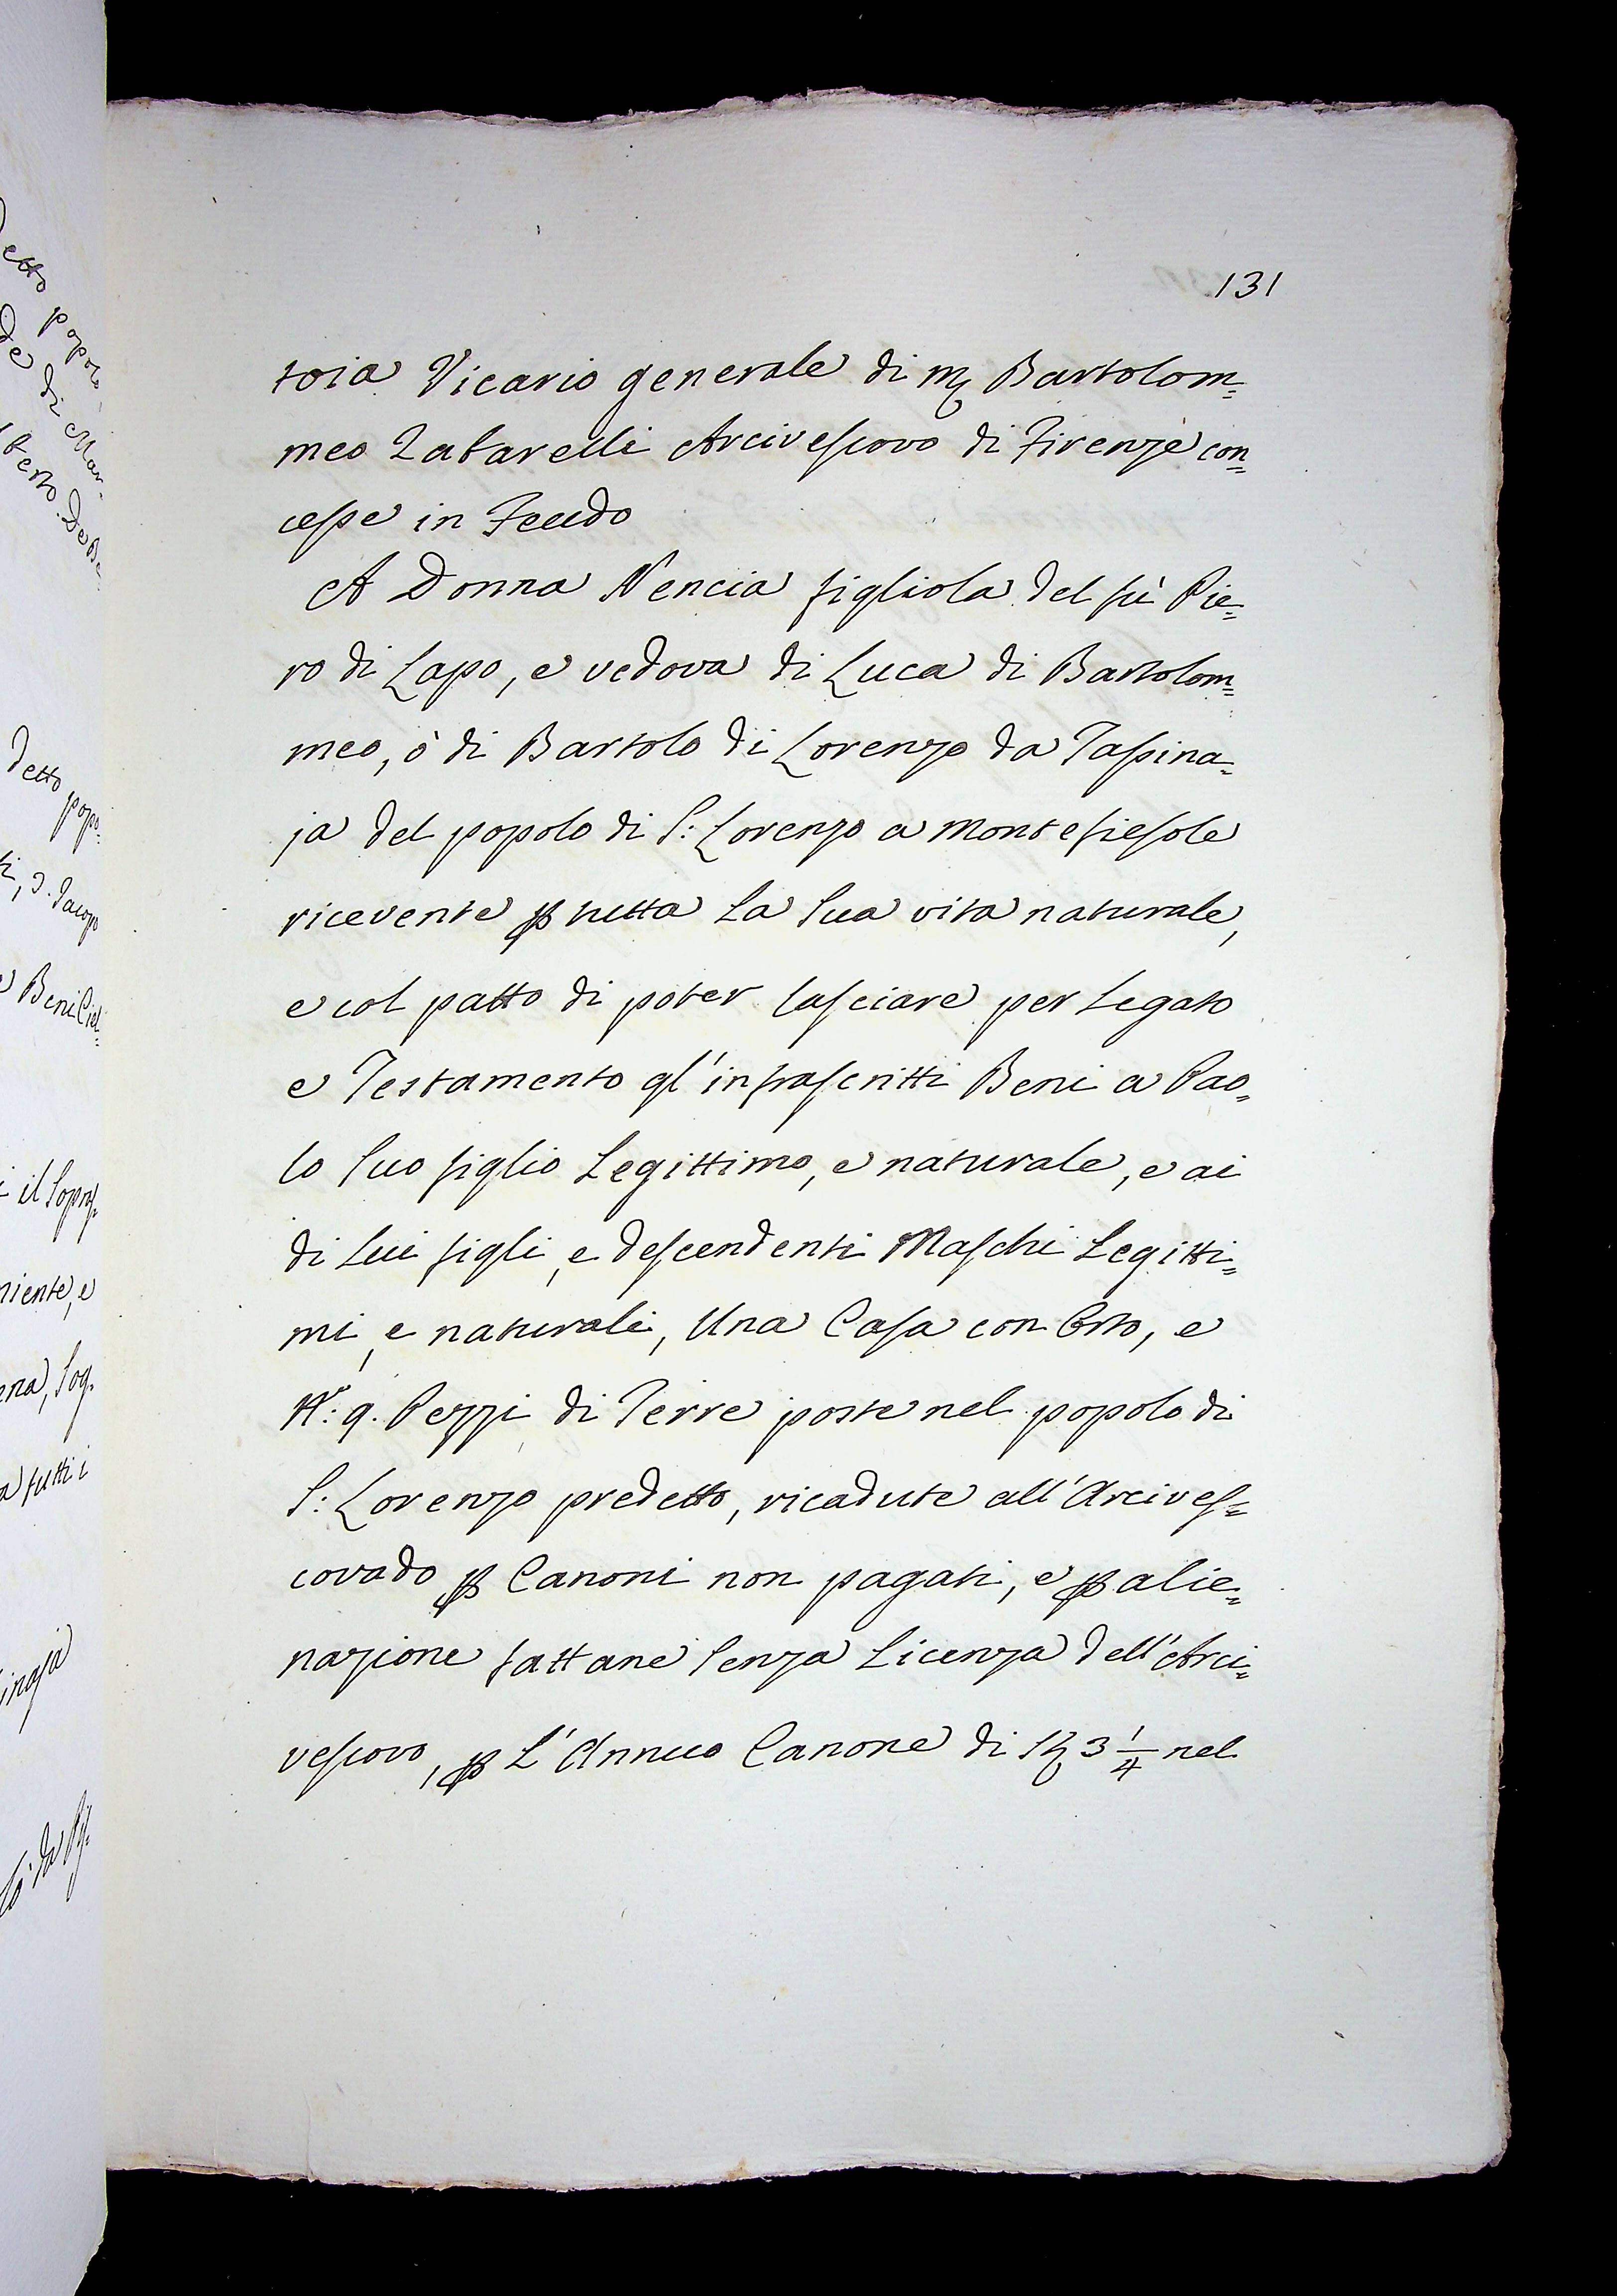 131
toia Vicario generale di m. Bartolom=
meo Zabarelli Arcivescovo di Firenze con=
cesse in Feudo
A Donna Nencia figliola del fù Pie=
ro di Lapo, e vedova di Luca di Bartolom=
meo, ò di Bartolo di Lorenzo da Tassina=
ja del popolo di S: Lorenzo a Montefiesole
ricevente p tutta la sua vita naturale,
e col patto di poter lasciare per legato
e Testamento gl'infrascritti Beni a Pao=
lo suo figlio Legittimo, e naturale, e ai
di lui figli, e descendenti Maschi Legitti=
mi, e naturali, Una Casa con Orto, e
N.º: 9. Pezzi di Terre poste nel popolo di
S: Lorenzo predetto, ricadute all'Arcives=
covado p Canoni non pagati, e p alie=
nazione fattane senza Licenza dell'Arci=
vescovo, p L'Annuo Canone di St 3 1/4 nel
detto popolo
de di Man=
detto popo=
Beni Ciel=
il sopras
niente, e
tutti i